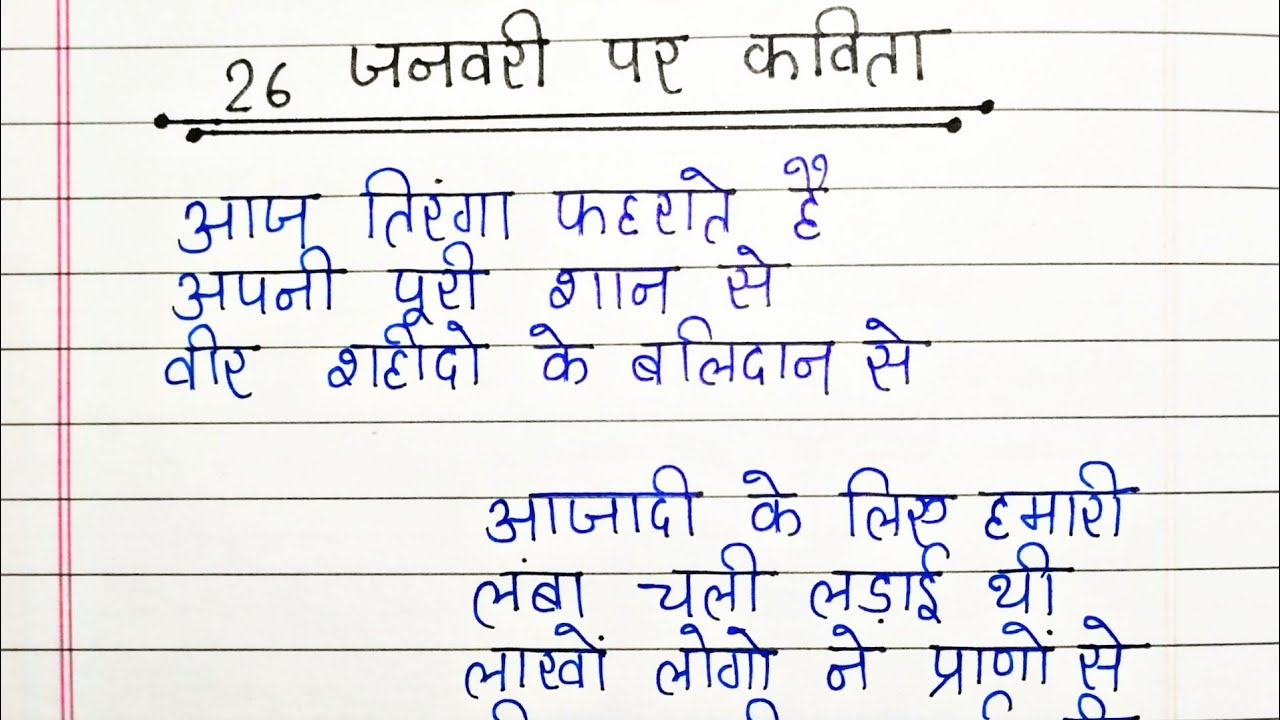 26 जनवरी पर कविता
आज तिरंगा फहराते है
अपनी पूरी शान से
वीर शहीदो के बलिदान से
आजादी के लिए हमारी
लंबा चली लड़ाई थी
लाखों लोगो ने प्राणों से